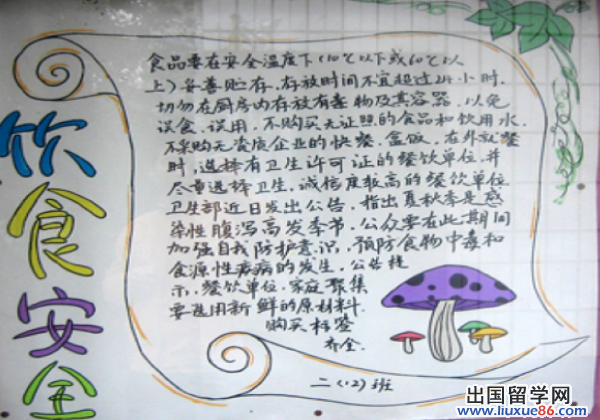 饮食安全
食品要在安全温度下（10℃以下或60℃以
上）妥善贮存，存放时间不宜超过24小时.
切勿在厨房内存放有毒物及其容器，以免
误食、误用，不购买无证照的食品和饮用水.
不采购无资质企业的快餐、盒饭，在外就餐
时，选择有卫生许可证的餐饮单位，并
尽量选择卫生，诚信度较高的餐饮单位.
卫生部近日发出公告，指出夏秋季是感
染性腹泻高发季节，公众要在此期间
加强自我防护意识，预防食物中毒和
食源性疾病的发生，公告提
示，餐饮单位、家庭聚集
要选用新鲜的原材料.
购买标签
齐全.
二（12）班
出国留学网
www.liuxue86.com